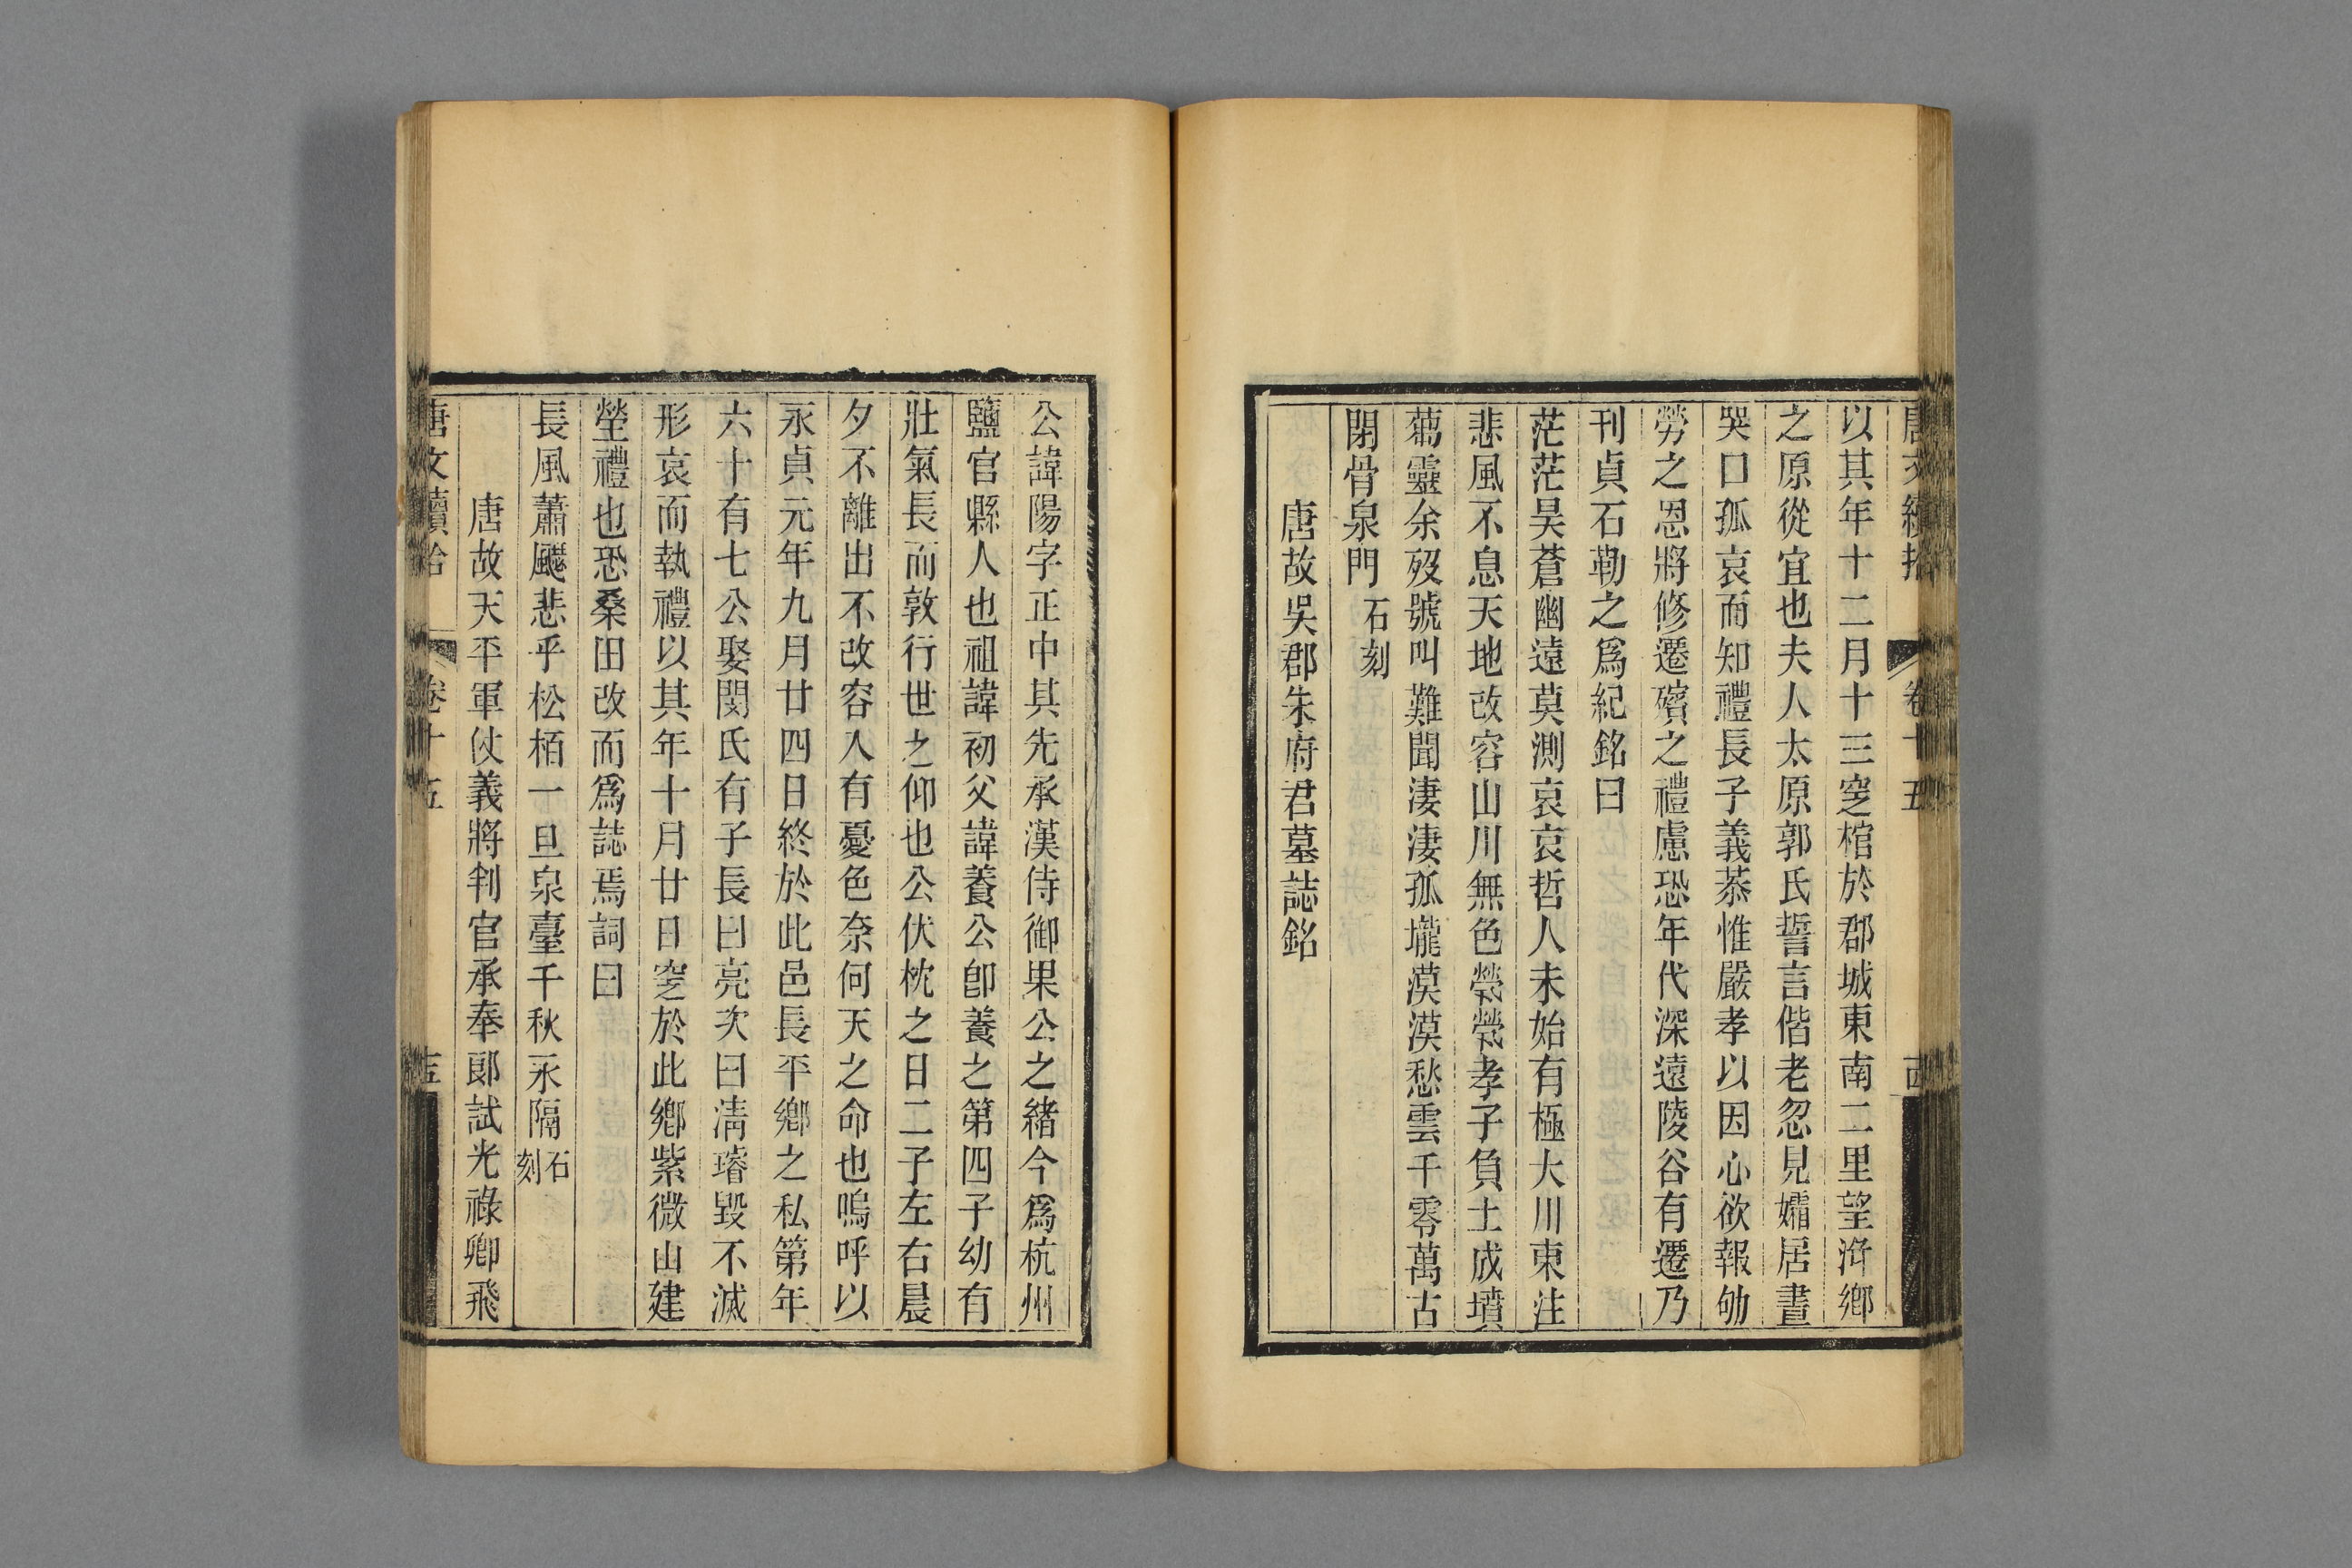 唐文續拾 卷十五 十四
以其年十二月十三窆棺於郡城東南二里望洊鄉
之原從宜也夫人太原郭氏誓言偕老忽見孀居晝
哭口孤哀而知禮長子義恭惟嚴孝以因心欲報劬
勞之恩將修遷殯之禮慮恐年代深遠陵谷有遷乃
刊貞石勒之爲紀銘曰
茫茫昊蒼幽遠莫測哀哀哲人未始有極大川東注
悲風不息天地改容山川無色煢煢孝子負土成墳
蔫靈余歿號叫難聞淒淒孤壠漠漠愁雲千零萬古
閉骨泉門 石刻
唐故吳郡朱府君墓誌銘
公諱陽字正中其先承漢侍御果公之緒今爲杭州
鹽官縣人也祖諱初父諱養公卽養之第四子幼有
壯氣長而敦行世之仰也公伏枕之日二子左右晨
夕不離出不改容入有憂色奈何天之命也嗚呼以
永貞元年九月廿四日終於此邑長平鄉之私第年
六十有七公娶閔氏有子長曰亮次曰淸璿毀不滅
形哀而執禮以其年十月廿日窆於此鄉紫微山建
塋禮也恐桑田改而爲誌焉詞曰
長風蕭飋悲乎松栢一旦泉臺千秋永隔 石刻
唐故天平軍仗義將判官承奉郞試光祿卿飛
唐文續拾 卷十五 十五